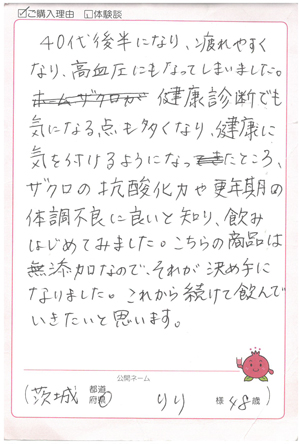 ☑ご購入理由 □体験談
40代後半になり、疲れやすく
なり、高血圧にもなってしまいました。
ホームザクロが 健康診断でも
気になる点も多くなり、健康に
気を付けるようになっきたところ、
ザクロの抗酸化力や更年期の
体調不良に良いと知り、飲み
はじめてみました。こちらの商品は
無添加なので、それが決め手に
なりました。これから続けて飲んで
いきたいと思います。
公開ネーム
(茨城 都道府県 りり 様 48歳)